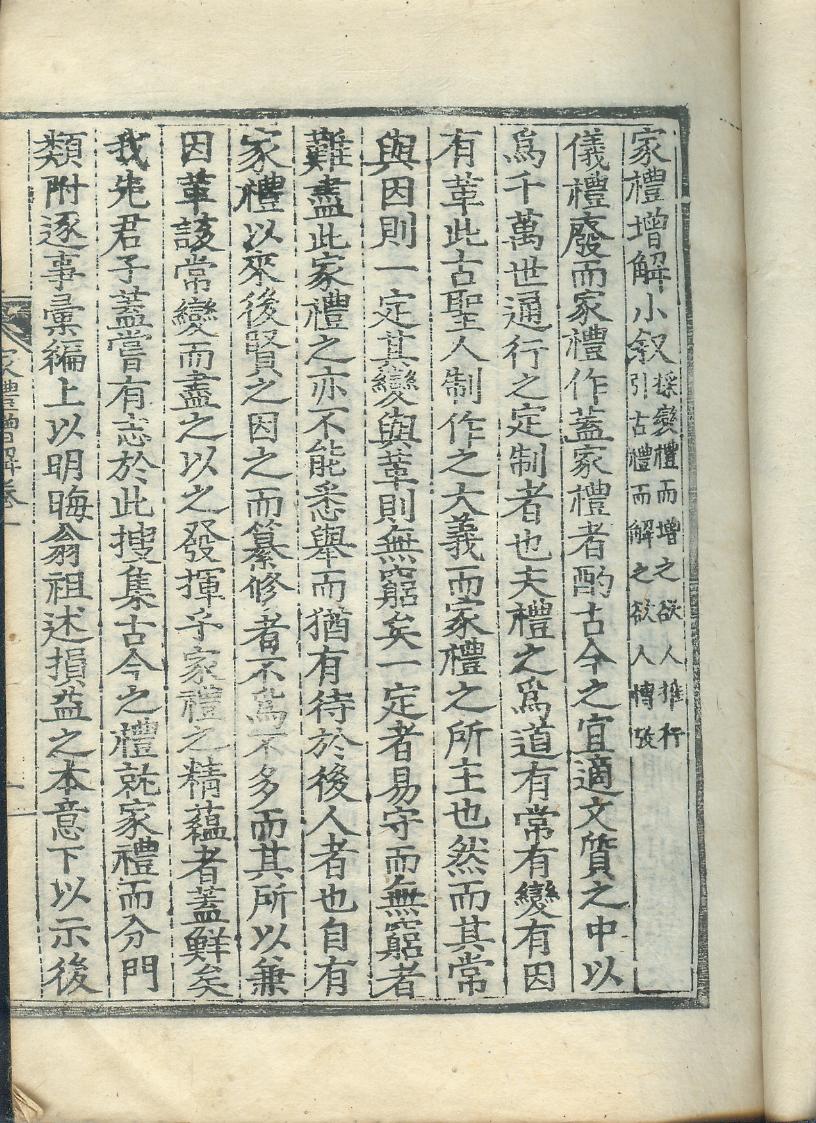 家禮增解小叙 採變禮而增之欲人推行
引古禮而解之欲人博攷
儀禮廢而家禮作蓋家禮者酌古今之宜適文質之中以
爲千萬世通行之定制者也夫禮之爲道有常有變有因
有革此古聖人制作之大義而家禮之所主也然而其常
與因則一定其變與革則無窮矣一定者易守而無窮者
難盡此家禮之亦不能悉舉而猶有待於後人者也自有
家禮以來後賢之因之而纂修者不爲不多而其所以兼
因革該常變而盡之以之發揮乎家禮之精蘊者蓋鮮矣
我先君子蓋嘗有志於此搜集古今之禮就家禮而分門
類附逐事彙編上以明晦翁祖述損益之本意下以示後
家禮增解卷一
一